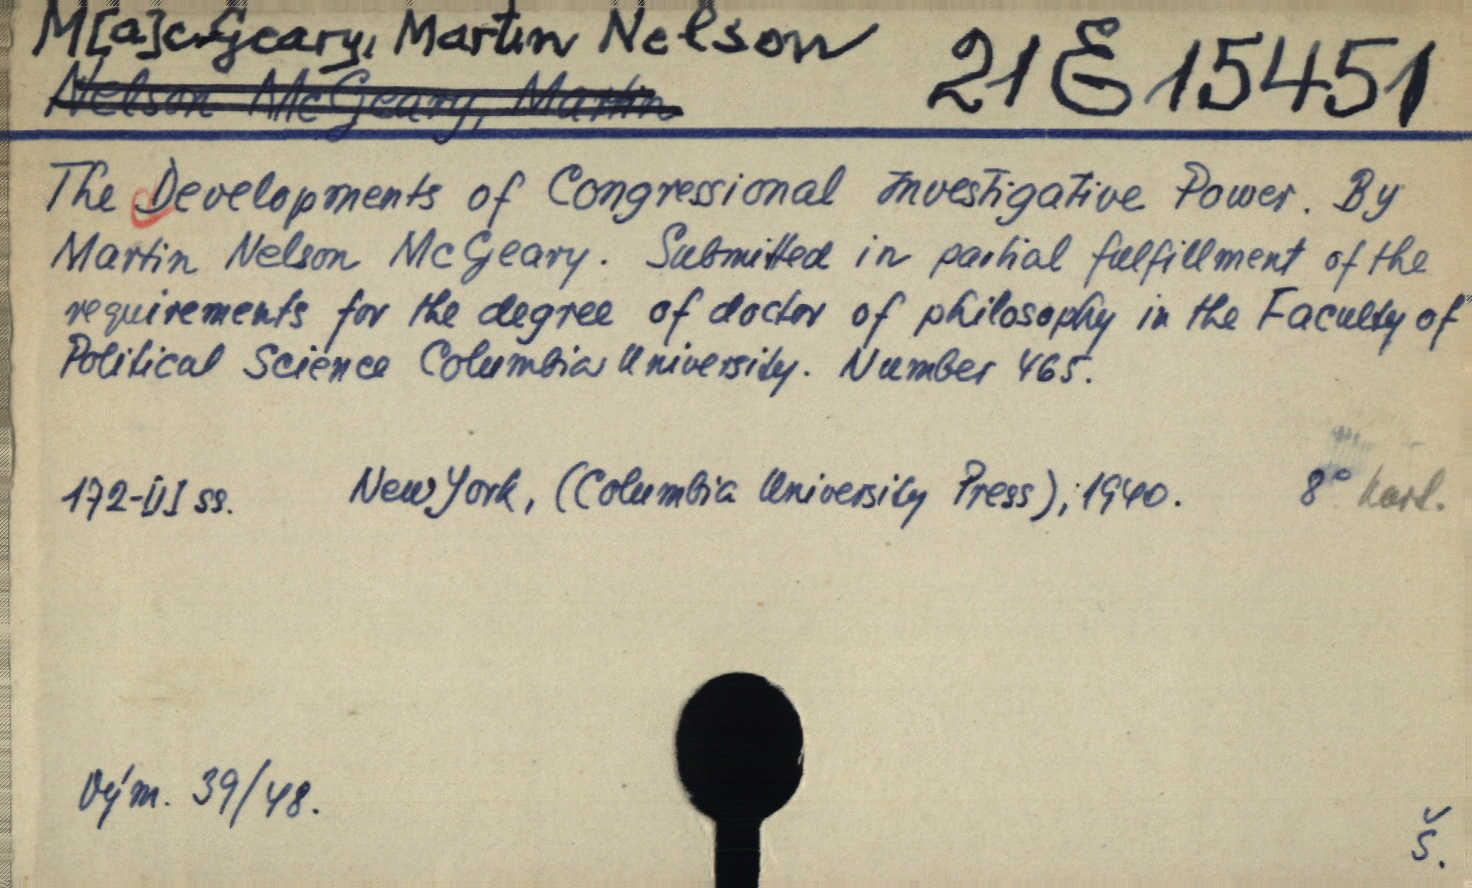 M[a]c-Geary, Martin Nelson
21 E 15451
Nelson McGeary, Martin
The Developments of Congressional Investigative Power. By
Martin Nelson McGeary. Submitted in partial fulfillment of the
requirements for the degree of doctor of philosophy in the Faculty of
Political Science Columbia University. Number 465.
172-III ss. New York, (Columbia University Press), 1940. 8° kart.
Vým. 39/48.
Š.